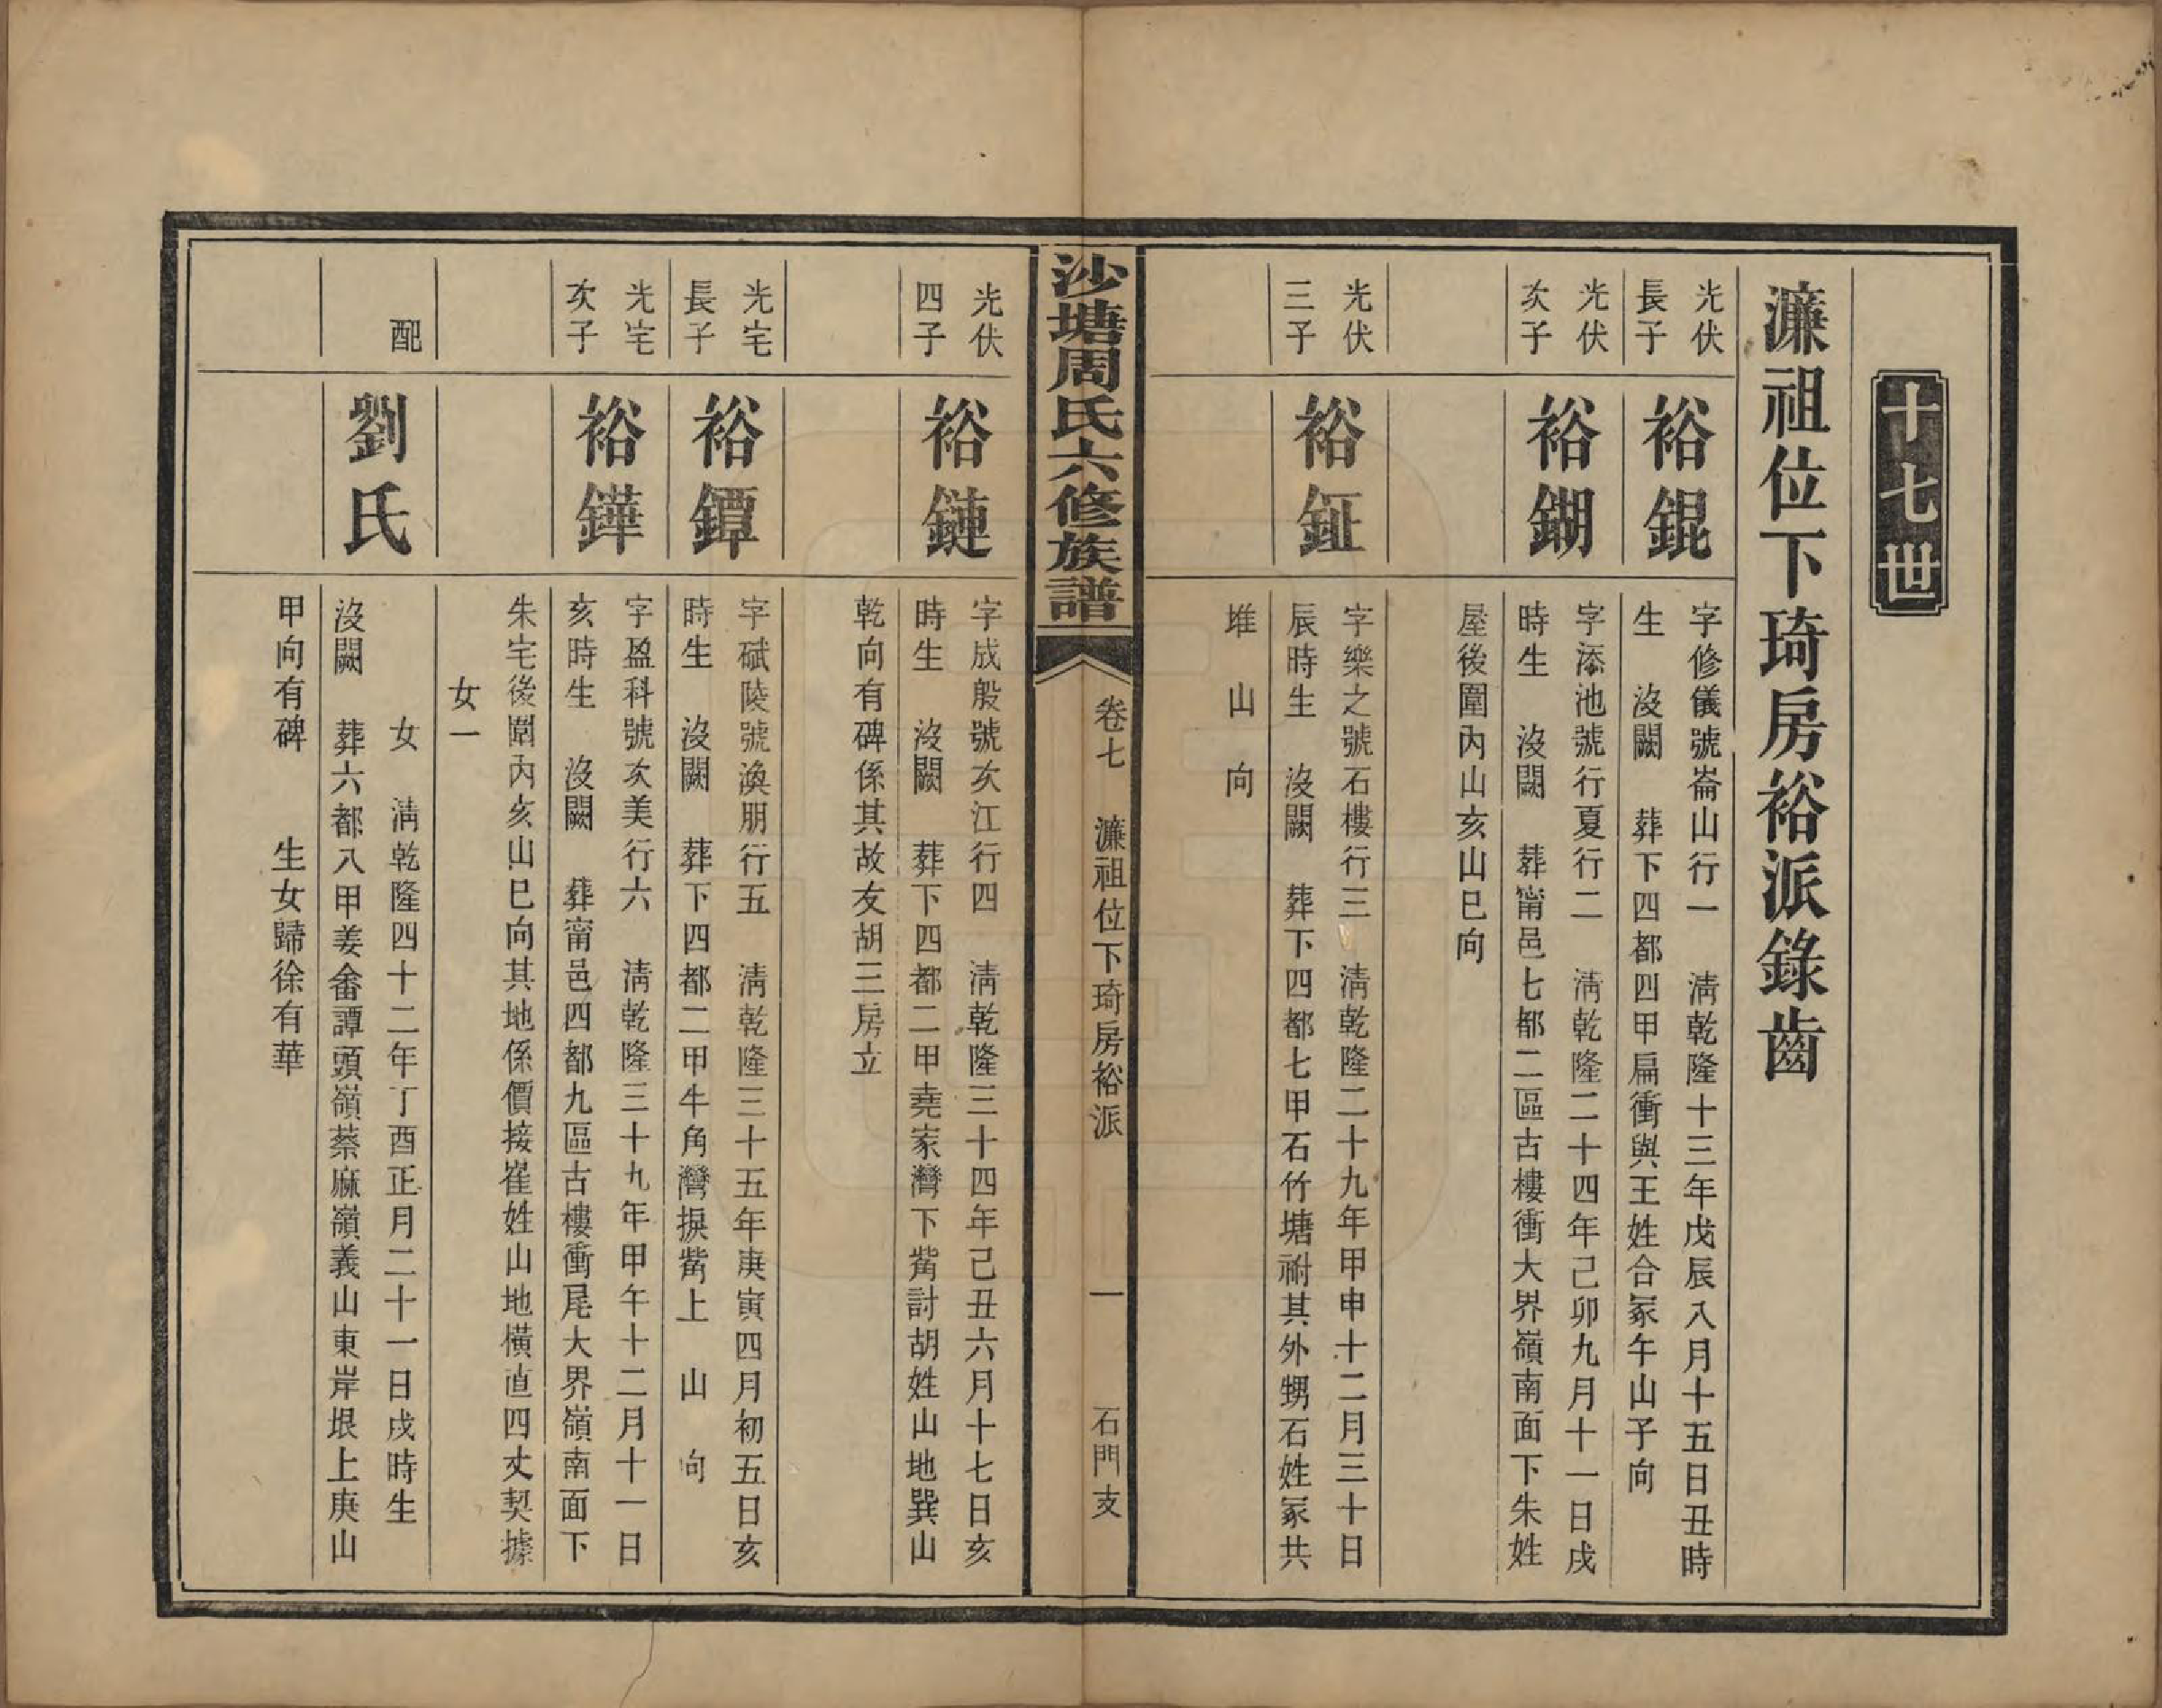 十七世
濂祖位下琦房裕派錄齒
光伏
長子
裕錕
字修儀號崙山行一 淸乾隆十三年戊辰八月十五日丑時
生 沒闕 葬下四都四甲扁衝與王姓合冢午山子向
光伏
次子
裕鍸
字添池號行夏行二 淸乾隆二十四年己卯九月十一日戌
時生 沒闕 葬甯邑七都二區古樓衝大界嶺南面下朱姓
屋後圍內山亥山巳向
光伏
三子
裕鉦
字樂之號石樓行三 淸乾隆二十九年甲申十二月三十日
辰時生 沒闕 葬下四都七甲石竹塘祔其外甥石姓冢共
堆 山 向
沙塘周氏六修族譜
卷七 濂祖位下琦房裕派 一 石門支
光伏
四子
裕鏈
字成般號次江行四 淸乾隆三十四年己丑六月十七日亥
時生 沒闕 葬下四都二甲堯家灣下觜討胡姓山地巽山
乾向有碑係其故友胡三房立
光宅
長子
裕鐔
字碔陵號渙朋行五 淸乾隆三十五年庚寅四月初五日亥
時生 沒闕 葬下四都二甲牛角灣捩觜上 山 向
光宅
次子
裕鏵
字盈科號次美行六 淸乾隆三十九年甲午十二月十一日
亥時生 沒闕 葬甯邑四都九區古樓衝尾大界嶺南面下
朱宅後圍內亥山巳向其地係價接崔姓山地橫直四丈契據
女一
配
劉氏
女 淸乾隆四十二年丁酉正月二十一日戌時生
沒闕 葬六都八甲姜畬譚頭嶺蔡麻嶺義山東岸垠上庚山
甲向有碑 生女歸徐有華